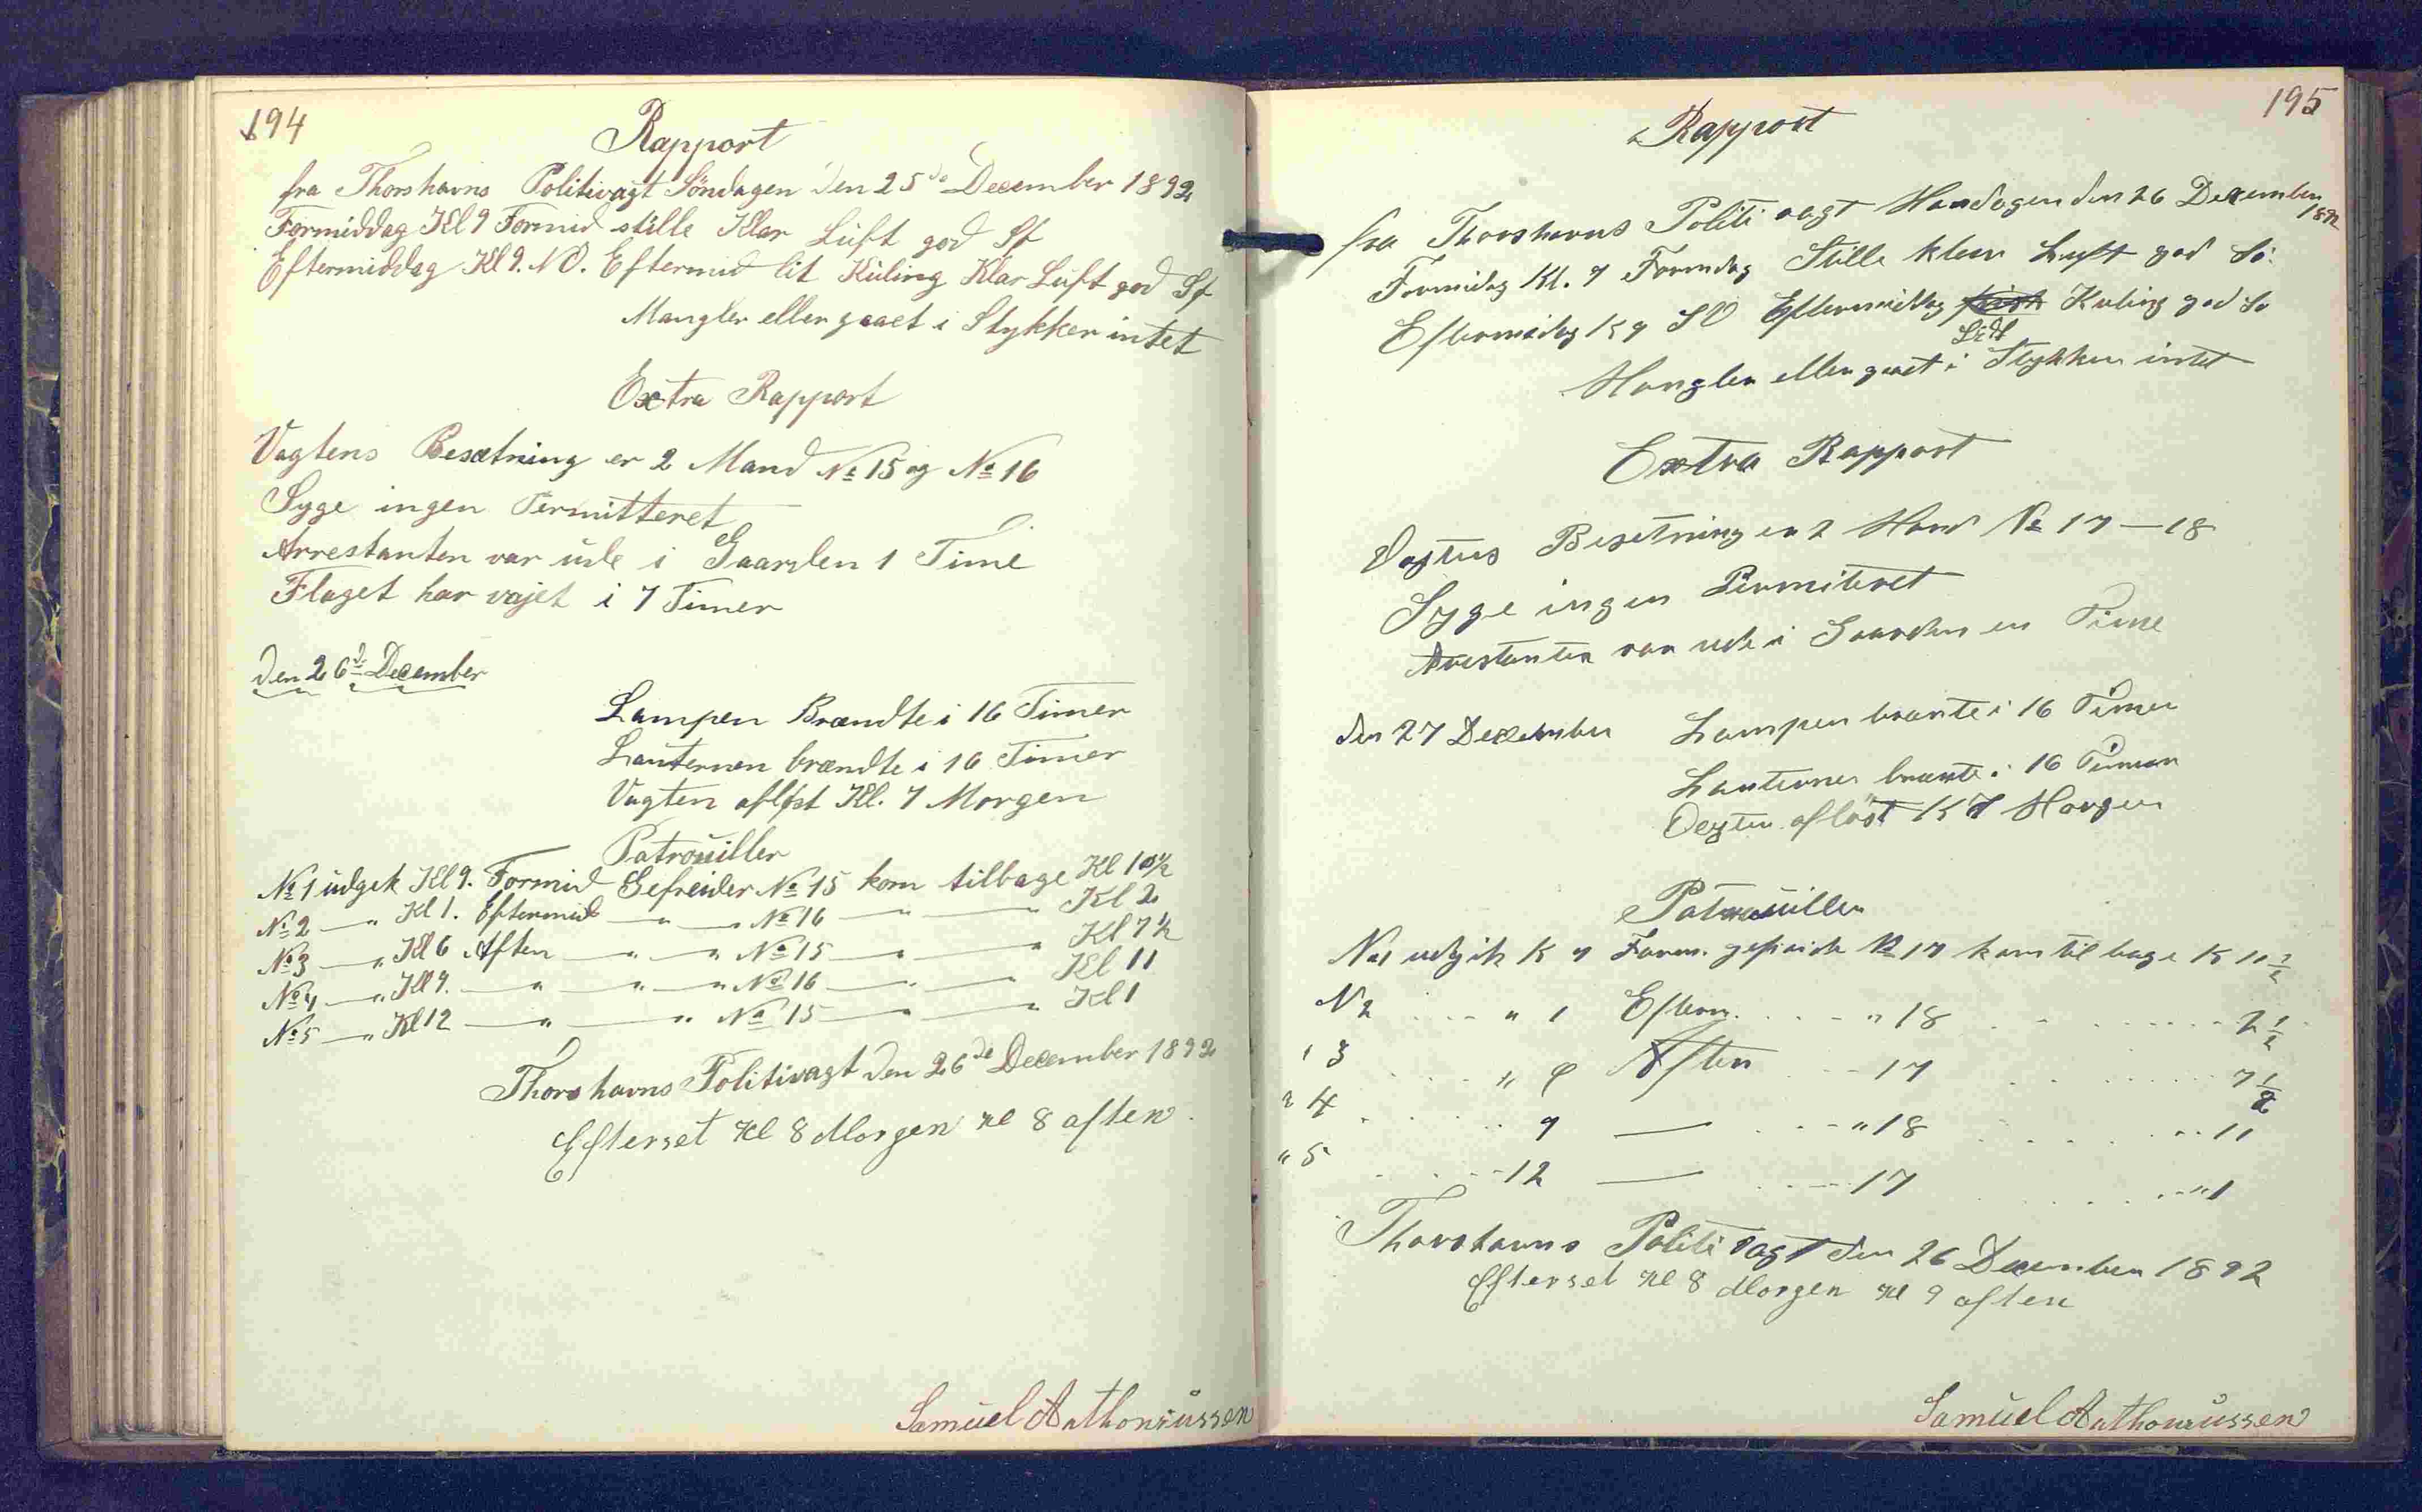 194
Rapport
fra Thorshavns Politivagt Söndagen den 25de December 1892
Formiddag Kl 9 Formid stille Klar Luft god Sø
Eftermiddag Kl 9. NO. Eftermid lit Kuling Klar Luft god Sø
Mangler eller gaaet i Stykker intet
Extra Rapport
Vagtens Besætning er 2 Mand No 15 og No 16
Syge ingen Permitteret
Arrestanten var ude i Gaarden 1 Time
Flaget har vajet i 7 Timer
den 26d December
Lampen Brændte i 16 Timer
Lanternen brændte i 16 Timer
Vagten afløst Kl. 7 Morgen
Patrouiller
No 1 udgik Kl 9. Formid Gefreider No 15 kom tilbage Kl 10½
No 2 — " Kl 1. Eftermid — " — No 16 — " — Kl 2
No 3 — " Kl 6 Aften — " — " No 15 — " — " Kl 7½
No 4 — " Kl 9. — " — " — " No 16 — " — " Kl 11
No 5 — " Kl 12 — " — " No 15 — " — " Kl 1
Thorshavns Politivagt den 26de December 1892
Efterset Kl 8 Morgen Kl 8 aften.
Samuel Anthoniussen
195
Rapport
fra Thorshavns Politi vagt Mandagen den 26 December 1892
Formidag Kl. 9 Formdag Stille klar Luft god Sö
Eftermidag K 9 SO Eftermidag Lidt Kuling god So
Mangler eller gaaet i Stykker intet
Extra Rapport
Vagtens Besetning er 2 Mand No 17 — 18
Syge ingen Permiteret
Arestanten var ude i Gaarden en Time
den 27 December Lampen brante i 16 Timer
Lanternen brante i 16 Timer
Vagten aflöst K 7 Morgen
Patrouiller
No 1 udgik K 9 Form. No 17 kom til bage K 10 1/2
N 2 " 1 Efterm. " 18 2 1/2
" 3 " 6 Aften 17 7 1/2
" 4 9 — " 18 " 11
" 5 12 — 17 " 1
Thorshavns Politi vagt den 26 December 1892
Efterset Kl 8 Morgen Kl 9 aften
Samuel Anthoniussen